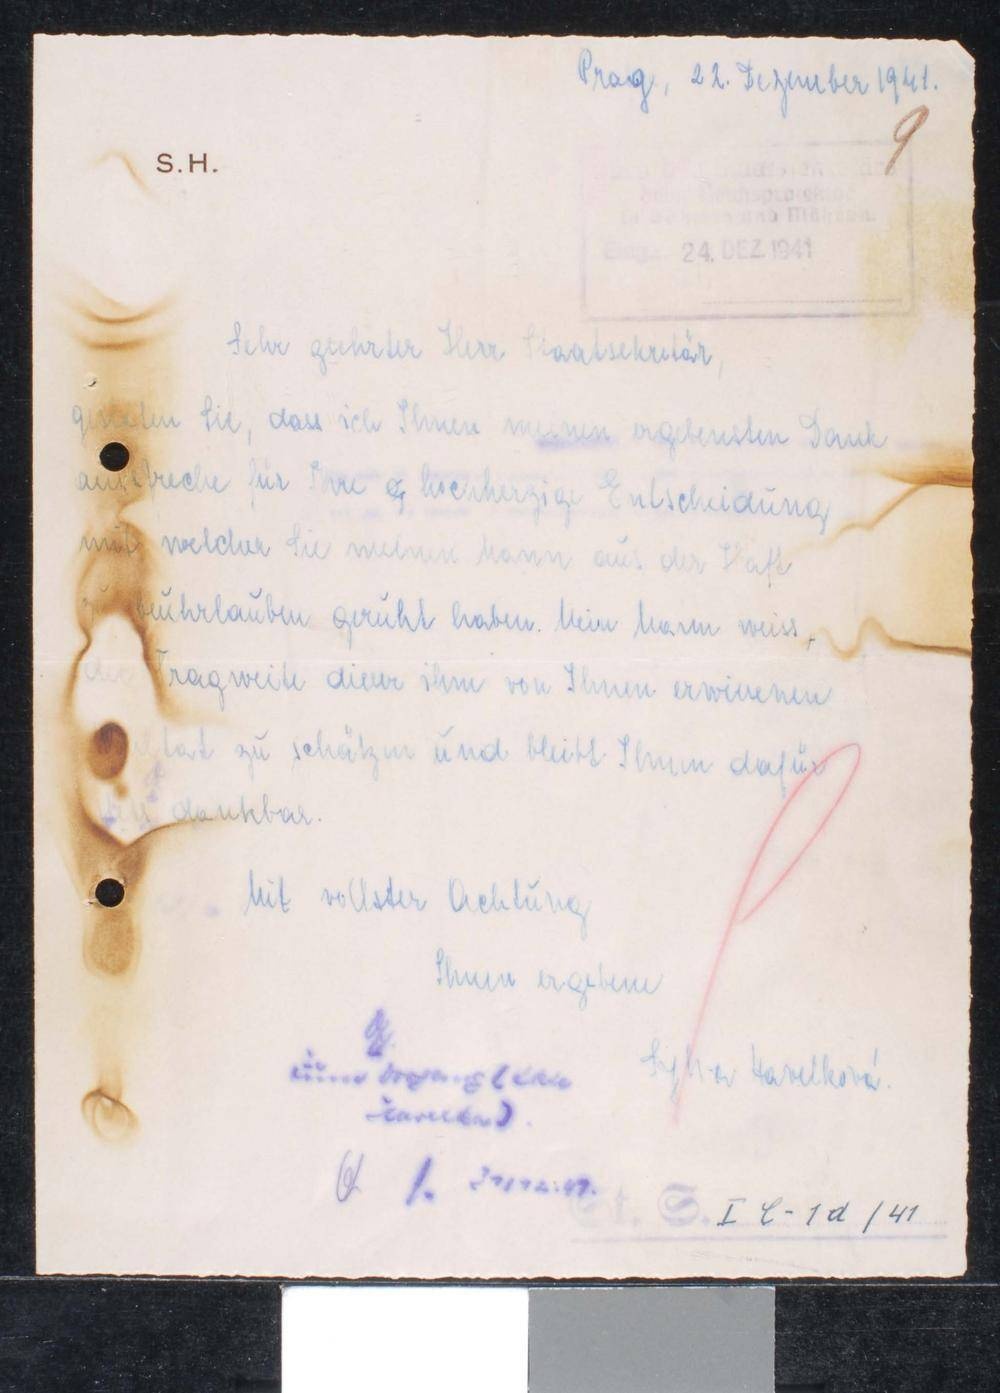 Prag, 22. Dezember 1941.
9
S.H.
beim Reichsprotektor
in Böhmen und Mähren
Eing. 24. DEZ. 1941
Sehr geehrter Herr Staatsekretär,
gestatten Sie, dass ich Ihnen meinen ergebensten Dank
ausspreche für Ihre hochherzige Entscheidung
mit welcher Sie meinen Mann aus der Haft
zu beuhrlauben geruht haben. Mein Mann weiss,
die Tragweite dieser ihm von Ihnen erwiesenen
zu schätzen und bleibt Ihnen dafür
dankbar.
Mit vollster Achtung
Ihnen ergebene
Sylva Havelková.
zum Vorgang
St. S. I C - 1 d / 41